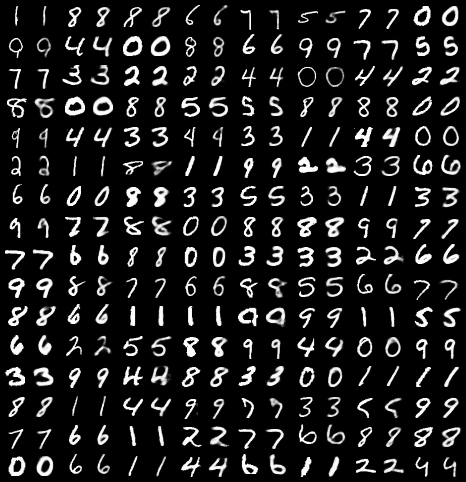 1 1 8 8 8 8 6 6 7 7 5 5 7 7 0 0
9 9 4 4 0 0 8 8 6 6 9 9 7 7 5 5
7 7 3 3 2 2 2 2 4 4 0 0 4 4 2 2
8 8 0 0 8 8 5 5 5 5 8 8 8 8 0 0
9 9 4 4 3 3 4 4 3 3 1 1 4 4 0 0
2 2 1 1 8 8 1 1 9 9 2 2 3 3 6 6
6 6 0 0 8 8 3 3 5 5 3 3 1 1 3 3
9 9 7 7 8 8 0 0 8 8 8 8 9 9 7 7
7 7 6 6 8 8 0 0 3 3 3 3 2 2 6 6
9 9 8 8 7 7 6 6 8 8 5 5 6 6 7 7
8 8 6 6 1 1 1 1 0 0 9 9 1 1 5 5
6 6 2 2 5 5 8 8 9 9 4 4 0 0 9 9
3 3 9 9 4 4 8 8 3 3 0 0 1 1 1 1
8 8 1 1 4 4 9 9 7 7 3 3 5 5 9 9
7 7 6 6 1 1 2 2 7 7 6 6 8 8 8 8
0 0 6 6 1 1 4 4 6 6 1 1 2 2 9 9